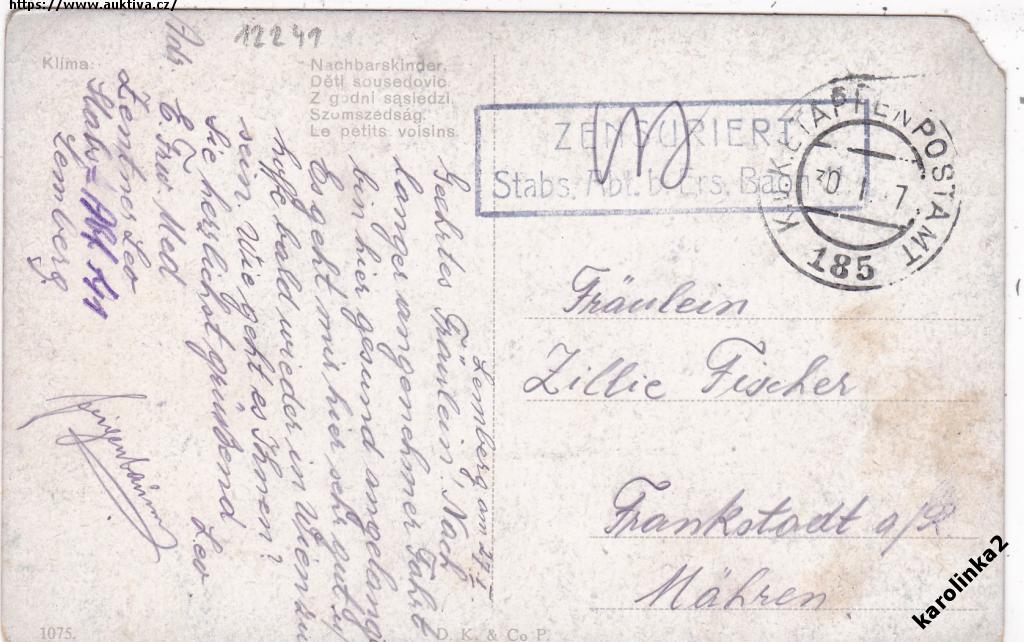 https://www.auktiva.cz/
12241
Klíma:
Nachbarskinder.
Děti sousedovic.
Z godni sąsiedzi.
Szomszédság.
Le petits voisins.
ZENSURIERT
Stabs. Abt. b. Ers. Baon
K.u.K. ETAPPENPOSTAMT
185
Fräulein
Zillie Fischer
Frankstadt a/R
Mähren
Lemberg am 29/I.
Geehrtes Fräulein! Nach
langer angenehmer Fahrt
bin hier gesund angelangt
Es geht mir hier sehr gut u
hoffe bald wieder in Wien zu
sein. Wie geht es Ihnen?
Sie herzlichst grüßend
Leo
Abs.
E Frw. Med
Zentner Leo
Stabs=Abt
Lemberg
1075.
D. K. & Co P.
karolinka2